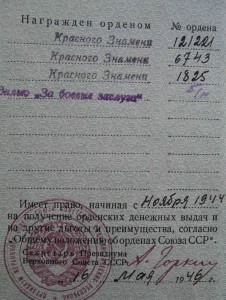 Награжден орденом № ордена
Красного Знамени 121221
Красного Знамени 6743
Красного Знамени 1825
„За боевые заслуги“ б/н
Имеет право, начиная с Ноября 1944
на получение орденских денежных выдач и
на другие льготы и преимущества, согласно
„Общему положению об орденах Союза ССР“.
Секретарь Президиума
Верховного Совета СССР А. Горкин
16 мая 1945 г.